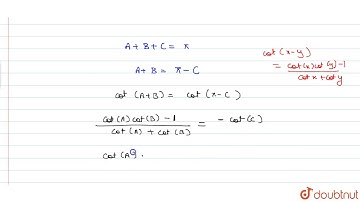 A + B + C = π
A + B = π - C
cot (A+B) = cot (π - C)
cot (A) cot (B) - 1 / cot (A) + cot (B) = - cot (C)
cot (A)
cot (x - y)
= cot (x) cot (y) - 1 / cot x + cot y
doubtnut